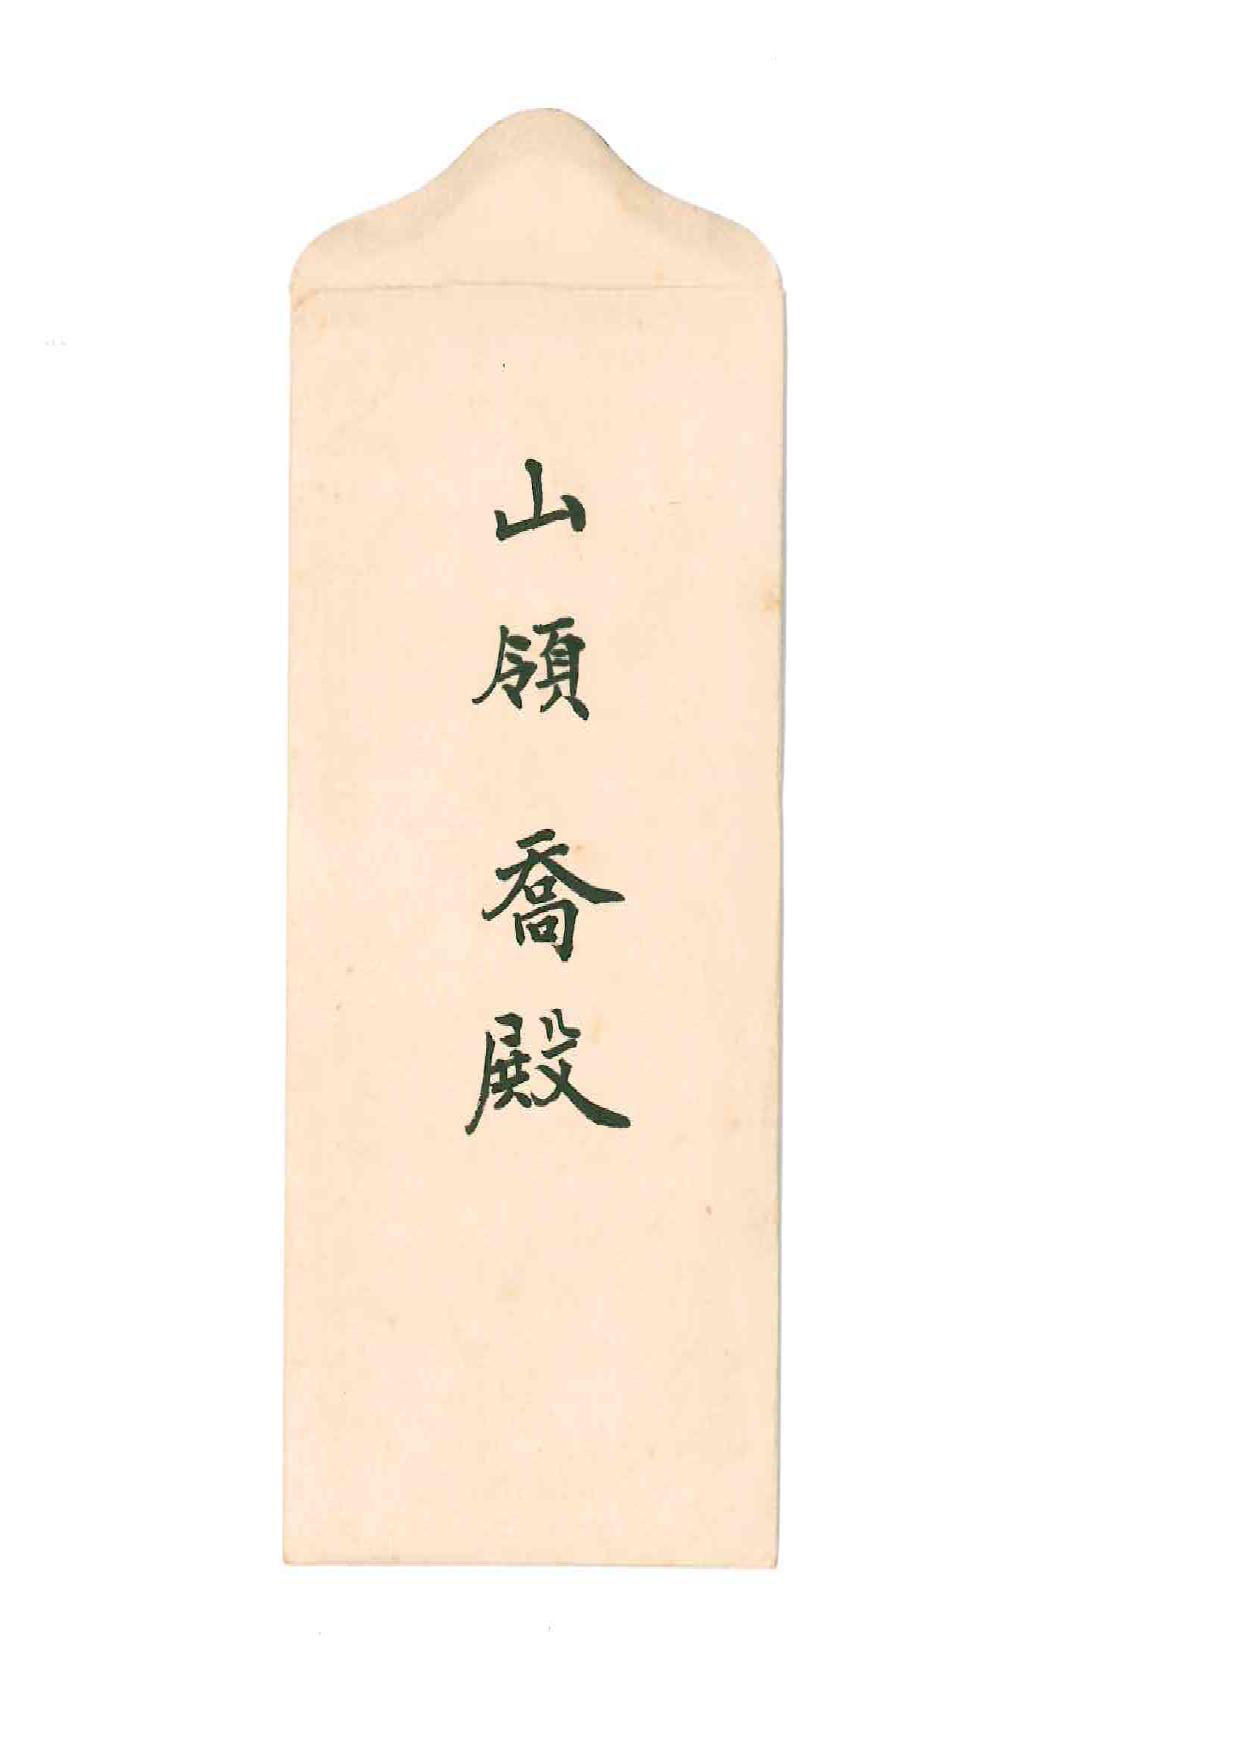 山領喬殿